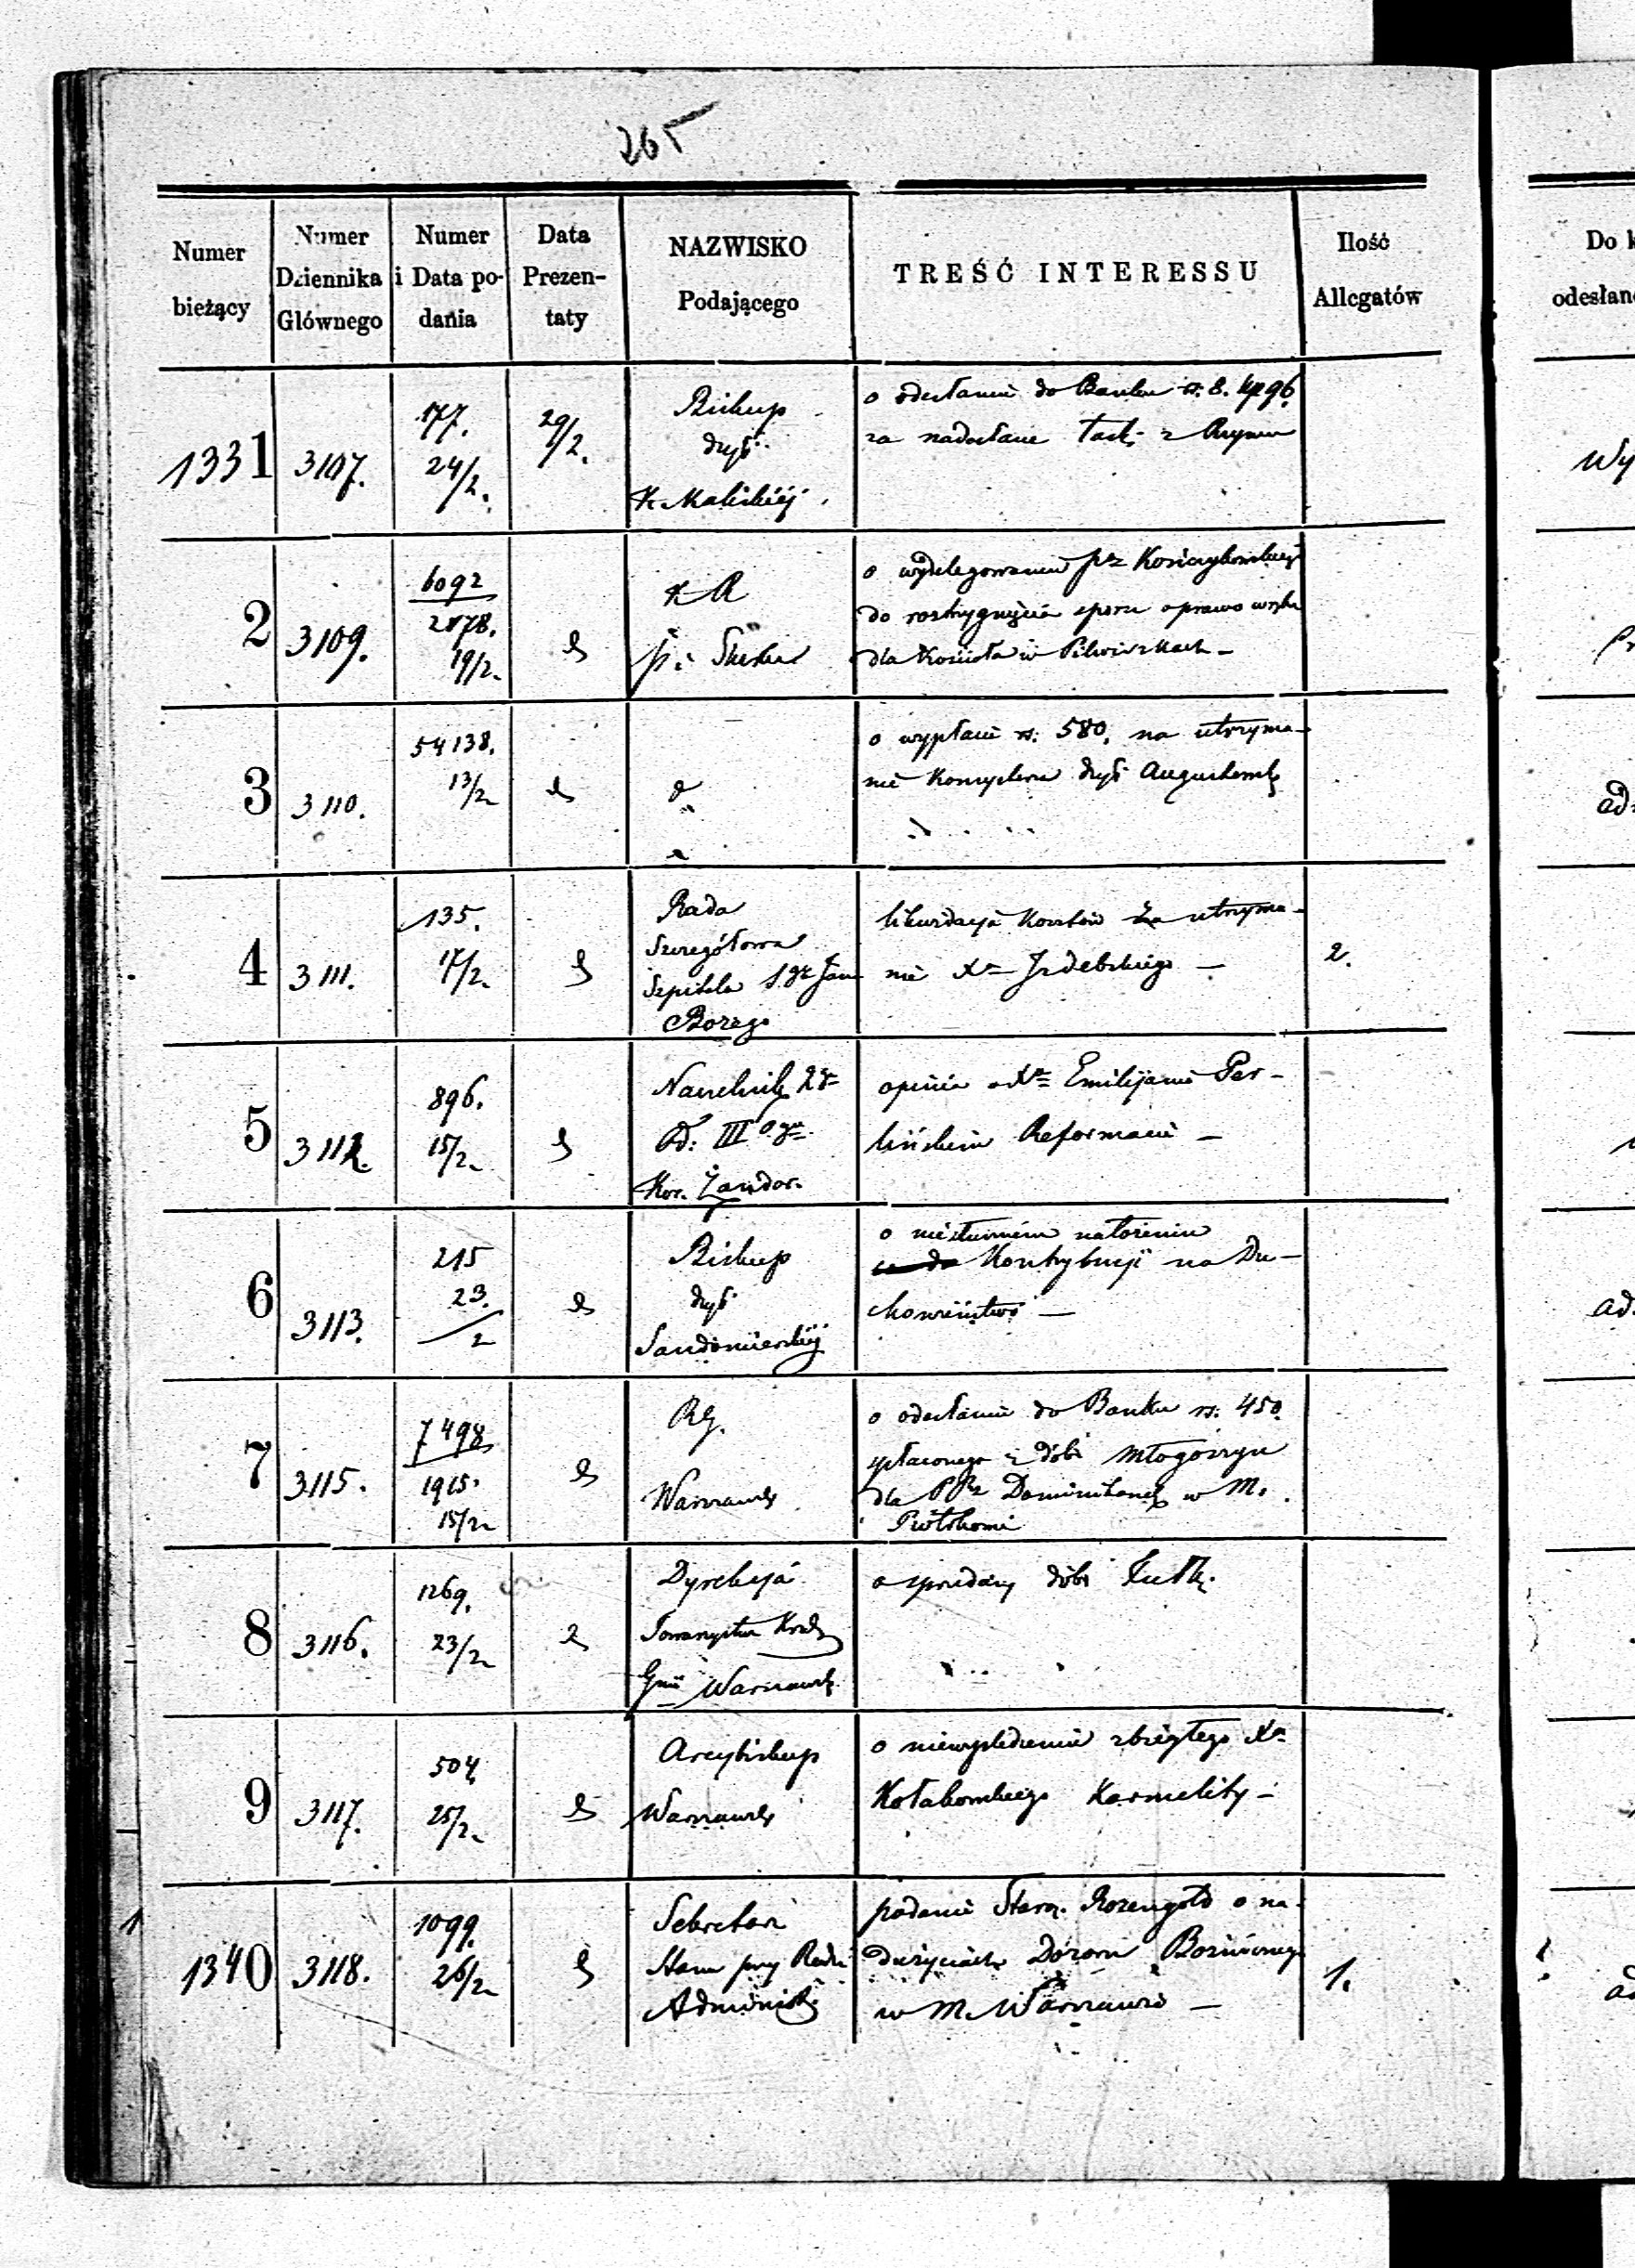 265
Numer bieżący
Numer Dziennika Głównego
Numer i Data podania
Data Prezentaty
NAZWISKO Podającego
TREŚĆ INTERESSU
Ilość Allegatów
Do k
odesłan
1331
3107.
177.
24/2.
29/2.
Biskup
dyś
o odesłanie do Banku rs. 8. kp 96.
za nadesłane z Rzymu
Wy
2
3109.
6092
2878.
19/2.
o wydelegowanie
do rozstrzygnięcia sporu o prawo
dla Kościoła w Pilwiszkach –
3
3110.
54138.
13/2
o wypłacie rs. 580. na utrzyma-
nie Konsystorza Augustowsk
ad.
4
3111.
135.
17/2.
Rada
Szczegółowa
Szpitala Sgo Jana
Bożego
likwidacja Kosztów za utrzyma-
nie Xa Izdebskiego –
2.
5
3112.
896.
15/2
Naczelnik
Od: III Ogu
Kor. Żandar.
opinia o Xu Emilijanie Per-
lińskim Reformacie –
6
3113.
215
23.
2
Biskup
dyś
Sandomierskiéj
o niesłusznem nałożeniu
Kontrybucji na Du-
chowieństwo –
ad.
7
3115.
7498
1915.
15/2
RG.
Warszawsk
o odesłanie do Banku rs. 450.
spłaconego z dóbr Młogoszyn
dla PPz Dominikanek w M.
Piotrkowie
8
3116.
1269.
23/2
Dyrekcja
Towarzystwa Kred
Gnii Warszawsk
o sprzedaży dóbr
9
3117.
504
25/2.
Arcybiskup
Warszawsk
o niewyśledzenie zbiegłego Xa
Kołakowskiego Karmelity –
1340
3118.
1099.
26/2
Sekretarz
Stanu przy Radzie
Administ
podanie Staroz. Rozengold o na-
dużyciach Dozoru Bożniczego
w M. Warszawie –
1.